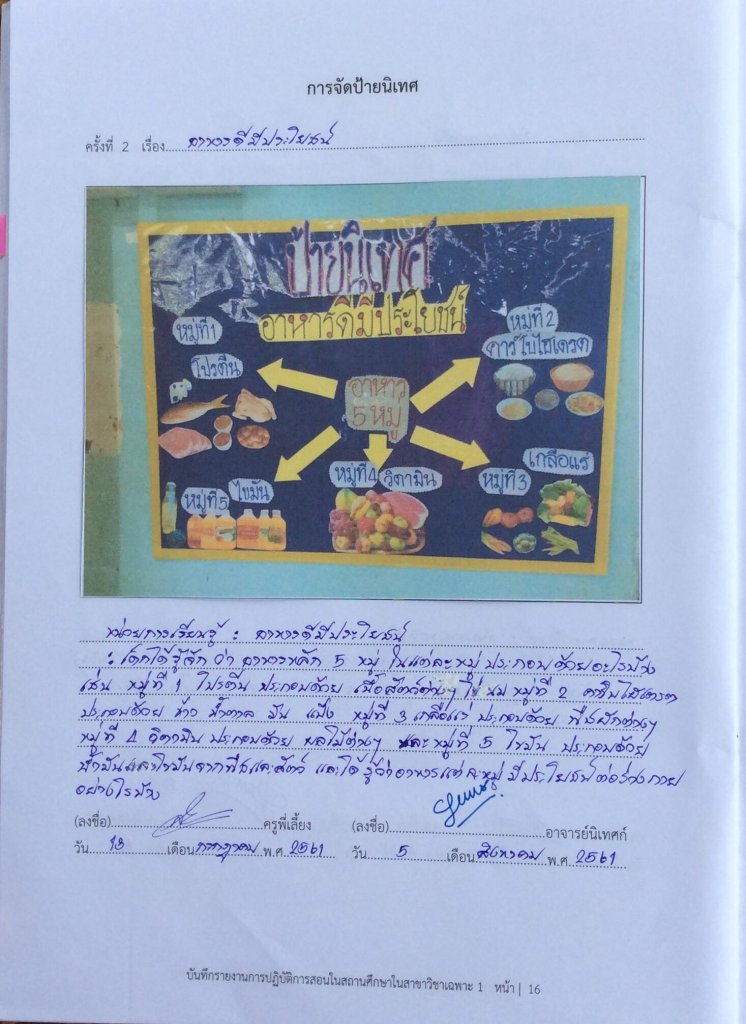 การจัดป้ายนิเทศ
ครั้งที่ 2 เรื่อง อาหารดีมีประโยชน์
ป้ายนิเทศ
อาหารดีมีประโยชน์
หมู่ที่ 1
โปรตีน
หมู่ที่ 2
คาร์โบไฮเดรต
อาหาร
5 หมู่
หมู่ที่ 5
ไขมัน
หมู่ที่ 4
วิตามิน
หมู่ที่ 3
เกลือแร่
หน่วยการเรียนรู้ : อาหารดีมีประโยชน์
: เด็กได้รู้จัก ว่า อาหารหลัก 5 หมู่ ในแต่ละหมู่ ประกอบด้วยอะไรบ้าง
เช่น หมู่ที่ 1 โปรตีน ประกอบด้วย เนื้อสัตว์ต่างๆ ไข่ นม หมู่ที่ 2
ประกอบด้วย ข้าว น้ำตาล มัน แป้ง หมู่ที่ 3 เกลือแร่ ประกอบด้วย พืชผักต่างๆ
หมู่ที่ 4 วิตามิน ประกอบด้วย ผลไม้ต่างๆ และหมู่ที่ 5 ไขมัน ประกอบด้วย
น้ำมันและไขมันจากพืชและสัตว์ และได้รู้ว่าอาหารแต่ละหมู่ มีประโยชน์ต่อร่างกาย
อย่างไรบ้าง
(ลงชื่อ) ครูพี่เลี้ยง (ลงชื่อ) อาจารย์นิเทศก์
วัน 13 เดือน กรกฎาคม พ.ศ. 2561 วัน 5 เดือน สิงหาคม พ.ศ. 2561
บันทึกรายงานการปฏิบัติการสอนในสถานศึกษาในสาขาวิชาเฉพาะ 1 หน้า | 16